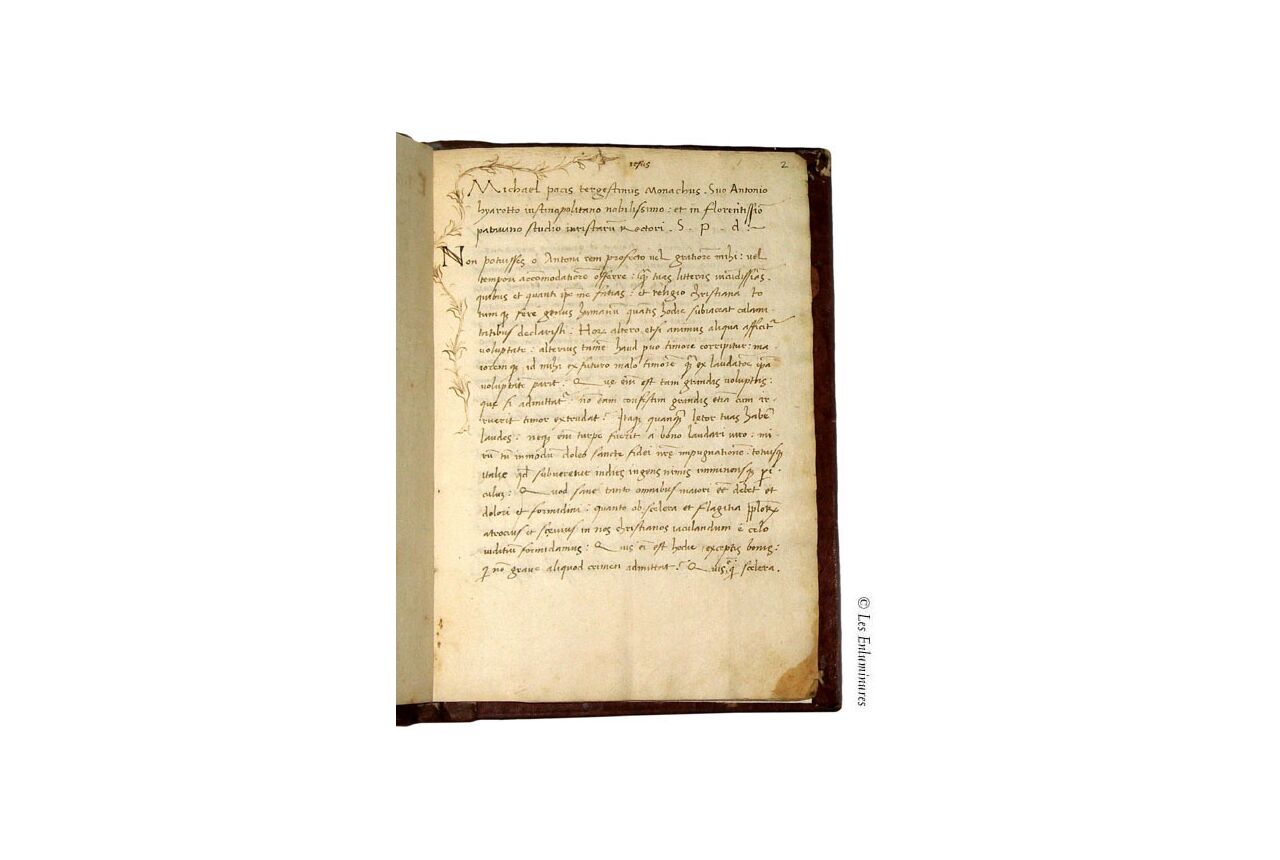 iesus
2
Michael pacis tergestinus Monachus. Suo Antonio
hyarotto iustinopolitano nobilissimo: et in florentissiō
patavino studio iuristarū Rectori. S. P. d.
Non potuisses o Antoni rem profecto vel gratiorē mihi: vel
tempori accōmodatiorē offerre: tuas litteris
quibus et quanti me facias: et religio christiana to
tum fere genus humanū quātis hodie subiaceat calami
tatibus declarasti: Hor altero etsi animus aliqua afficit
voluptate: alterius tamē haud pvo timore corripitur: ma
iorem id mihi ex futuro malo timorē ex laudatōe
voluptatē parit. Que eīm est tam grandis voluptas:
que si admittat: nō eam confestim grandis etiā cum ir
ruerit timor extrudat? Itaq quanq letor tuas habē
laudes: neq enī turpe fuerit a bono laudari viro: mi
rū tn inmodum doleo sancte fidei nrē impugnationē: totiusq
italie qd subversetur indies ingens nimis imminensq peri
culum: Quod sane tanto omnibus maiori eē debet et
dolori et formidini: quanto ob scelera et flagitia
atrocius et sevius in nos christianos iaculandum e celo
iuditium formidamus: Quis eī est hodie exceptis bonis:
qi nō grave aliquod crimen admittat? Quis scelera.
© Les Enluminures